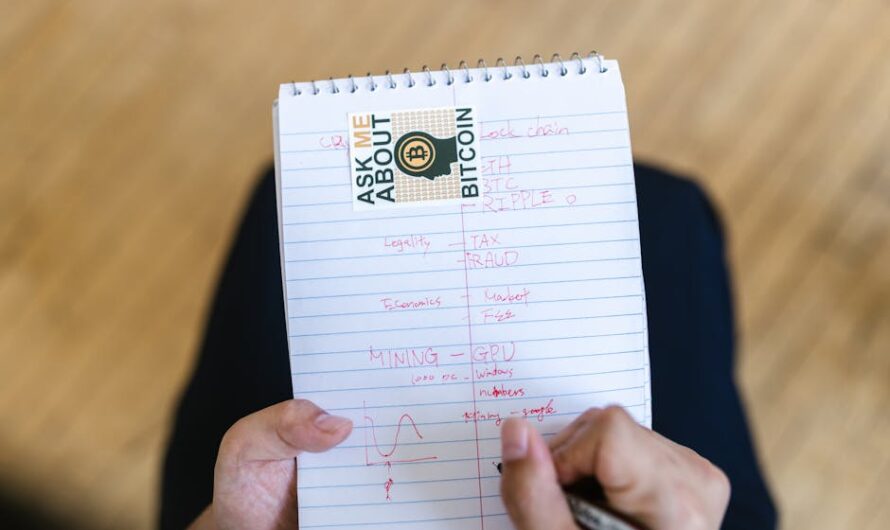 ASK ME
ABOUT
BITCOIN
lock chain
ETH
BTC
RIPPLE
Legality — TAX
FRAUD
Economics — Market
Fee
MINING — GPU
1000 PC — Windows
numbers
- google